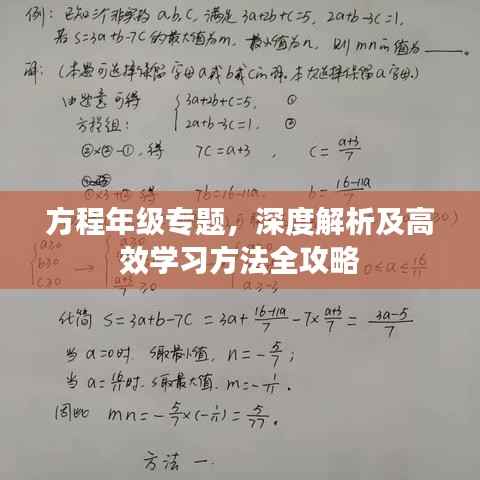 例：已知三个非负数 a,b,c, 满足 3a+2b+c=5, 2a+b-3c=1,
若 S=3a+b-7C 的最大值为m, 最小值为n, 则 mn的值为____.
解：(本题可选择保留字母a或b或c的一种.本次选择保留a字母.)
由题意可得 3a+2b+c=5, ①
方程组: 2a+b-3c=1. ②
②×2-①, 得 7C=a+3, C=(a+3)/7
得 7b=16-11a b=(16-11a)/7
方程年级专题，深度解析及高
效学习方法全攻略
a≥0
b≥0
c≥0
≤a≤16/11
化简 S=3a+b-7C=3a+(16-11a)/7-7×(a+3)/7=(3a-5)/7
当 a=0时. S取最小值, n=-5/7;
当 a=16/11时. S取最大值. m=-1/11.
因此 mn=-5/7×(-1/11)=5/77.
方法一.